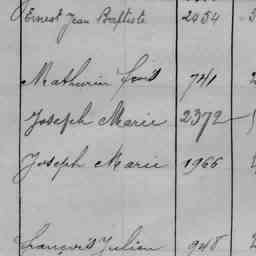 Ernest Jean Baptiste 2454
Mathurin 741
Joseph Marie 2372
Joseph Marie 1966
François Julien 948